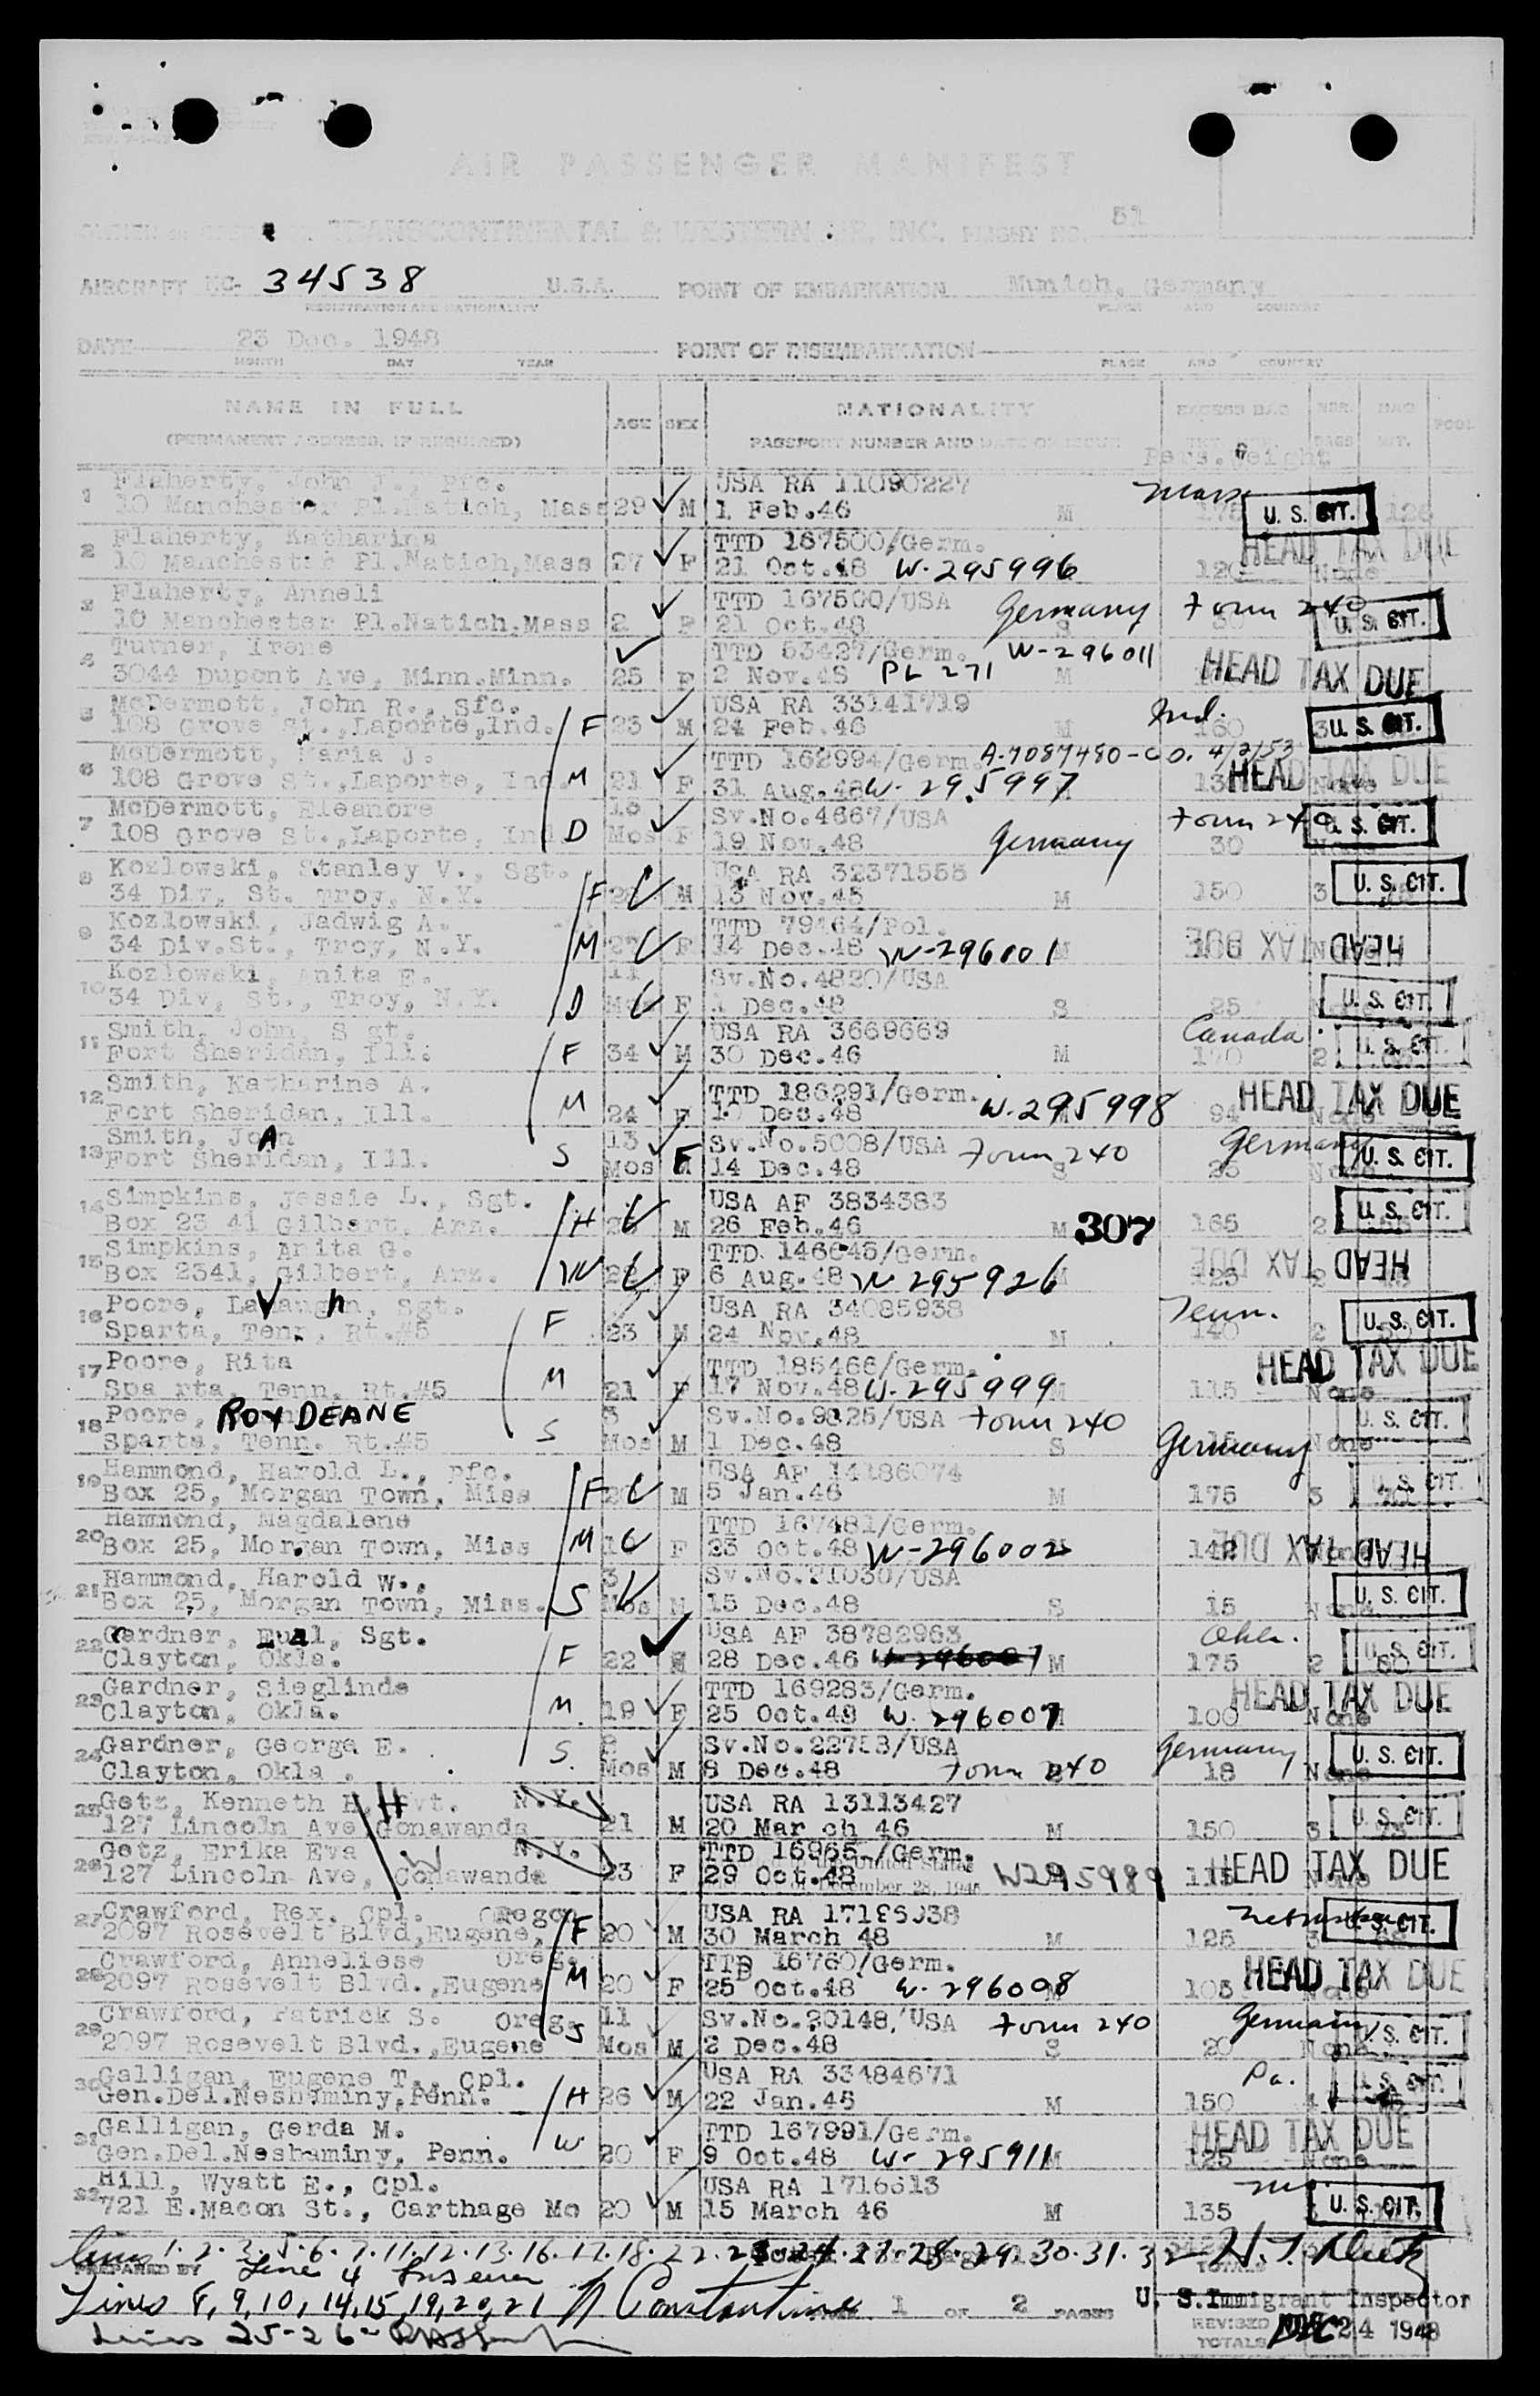 AIR PASSENGER MANIFEST
TRANSCONTINENTAL & WESTERN AIR, INC. FLIGHT NO. 51
AIRCRAFT NC- 34538 U.S.A. POINT OF EMBARKATION Munich, Germany
REGISTRATION AND NATIONALITY PLACE AND COUNTRY
DATE 23 Dec. 1948 POINT OF DISEMBARKATION
MONTH DAY YEAR PLACE AND COUNTRY
NAME IN FULL AGE SEX NATIONALITY EXCESS BAG NBR. BAG
(PERMANENT ADDRESS, IF REQUIRED) PASSPORT NUMBER AND DATE OF ISSUE PAGS WT.
Pers. Weight
1 Flaherty, John J., Pfc. USA RA 11090227 Mass
10 Manchester Pl.Natich, Mass 29 M 1 Feb.46 M U. S. CIT.
2 Flaherty, Katharina TTD 167500/Germ. HEAD TAX DUE
10 Manchester Pl.Natich,Mass 27 F 21 Oct.48 W-295996 120 None
3 Flaherty, Anneli TTD 167500/USA Germany Form 240
10 Manchester Pl.Natich,Mass 2 F 21 Oct.48 S U. S. CIT.
4 Turner, Irene TTD 53427/Germ. W-296011
3044 Dupont Ave, Minn.Minn. 25 F 2 Nov.48 PL 271 M HEAD TAX DUE
5 McDermott, John R., Sfc. USA RA 33141719 Ind.
108 Grove St.,Laporte,Ind. F 23 M 24 Feb.46 M 160 3 U. S. CIT.
6 McDermott, Maria J. TTD 162994/Germ. A-7087480-C.O. 4/2/53
108 Grove St.,Laporte, Ind. M 21 F 31 Aug.48 W-295997 HEAD TAX DUE None
7 McDermott, Eleanore 10 Sv.No.4667/USA Form 240
108 Grove St.,Laporte, Ind D Mos F 19 Nov.48 Germany 30 None U. S. CIT.
8 Kozlowski, Stanley V., Sgt. USA RA 32371555
34 Div. St. Troy, N.Y. F M 13 Nov.45 M 150 3 U. S. CIT.
9 Kozlowski, Jadwig A. TTD 79164/Pol.
34 Div.St., Troy, N.Y. M F 14 Dec.48 W-296001 HEAD TAX DUE
10 Kozlowski, Anita E. 11 Sv.No.4820/USA
34 Div, St., Troy, N.Y. D Mos F 1 Dec.48 S 25 U. S. CIT.
11 Smith, John S gt. USA RA 3669669 Canada
Fort Sheridan, Ill. F 34 M 30 Dec.46 M 170 2 U. S. CIT.
12 Smith, Katharine A. TTD 186291/Germ.
Fort Sheridan, Ill. M 24 F 10 Dec.48 W-295998 94 HEAD TAX DUE
13 Smith, JoAn 13 Sv.No.5008/USA Form 240 Germany
Fort Sheridan, Ill. S Mos F 14 Dec.48 S 25 None U. S. CIT.
14 Simpkins, Jessie L., Sgt. USA AF 3834383
Box 23 41 Gilbert, Arn. H M 26 Feb.46 M 307 165 2 U. S. CIT.
15 Simpkins, Anita G. TTD 146645/Germ.
Box 2341, Gilbert, Arz. W F 6 Aug.48 W 295926 125 2 HEAD TAX DUE
16 Poore, LaVaughn, Sgt. USA RA 34085938 Tenn.
Sparta, Tenn. Rt.#5 F 23 M 24 Nov.48 M 140 2 U. S. CIT.
17 Poore, Rita TTD 185466/Germ. HEAD TAX DUE
Spa rta, Tenn. Rt.#5 M 21 F 17 Nov.48 W-295999 M 115 None
18 Poore, ROY DEANE 3 Sv.No.9825/USA Form 240
Sparta, Tenn. Rt.#5 S Mos M 1 Dec.48 S Germany 15 None U. S. CIT.
19 Hammond, Harold L., Pfc. USA AF 14186074
Box 25, Morgan Town, Miss F M 5 Jan.46 M 175 3 U. S. CIT.
20 Hammond, Magdalene TTD 167481/Germ.
Box 25, Morgan Town, Miss M F 23 Oct.48 W-296002 142 HEAD TAX DUE
21 Hammond, Harold W., 3 Sv.No.21030/USA
Box 25, Morgan Town, Miss. S Mos M 15 Dec.48 S 15 None U. S. CIT.
22 Gardner, Eual, Sgt. USA AF 38782963 Okla.
Clayton, Okla. F 22 M 28 Dec.46 M 175 2 60 U. S. CIT.
23 Gardner, Sieglinde TTD 169283/Germ.
Clayton, Okla. M 19 F 25 Oct.48 W-296007 100 None HEAD TAX DUE
24 Gardner, George E. Sv.No.22753/USA Germany
Clayton, Okla . S. Mos M 8 Dec.48 Form 240 18 None U. S. CIT.
25 Getz, Kenneth H, Pvt. N.Y. USA RA 13113427
127 Lincoln Ave Conawanda 21 M 20 Mar ch 46 M 150 3 U. S. CIT.
26 Getz, Erika Eva W N.Y. TTD 16965-/Germ.
127 Lincoln Ave, Conawanda 23 F 29 Oct.48 December 28, 1945 W295989 115 HEAD TAX DUE
27 Crawford, Rex. Cpl. Oregon USA RA 17186038
2097 Rosevelt Blvd,Eugene, F 20 M 30 March 48 M 125 3 U. S. CIT.
28 Crawford, Anneliese Oreg. TTD 16760/Germ.
2097 Rosevelt Blvd.,Eugene M 20 F 25 Oct.48 W-296008 105 None HEAD TAX DUE
29 Crawford, Patrick S. Oreg. 11 Sv.No.20148/USA Form 240 Germany
2097 Rosevelt Blvd.,Eugene S Mos M 2 Dec.48 S 20 None U. S. CIT.
30 Galligan, Eugene T., Cpl. USA RA 33484671 Pa.
Gen.Del.Neshaminy,Penn. H 26 M 22 Jan.45 M 150 4 U. S. CIT.
31 Galligan, Gerda M. TTD 167991/Germ. HEAD TAX DUE
Gen.Del.Neshaminy, Penn. W 20 F 9 Oct.48 W-295911 M 125 None
32 Hill, Wyatt E., Cpl. USA RA 1716613 Mo.
721 E.Macon St., Carthage Mo 20 M 15 March 46 M 135 U. S. CIT.
Lines 1.2.3.5.6.7.11.12.13.16.17.18.22.23.24.27.28.29.30.31.32
PREPARED BY Line 4 TOTALS
Lines 8, 9, 10, 14, 15, 19, 20, 21 N Constantine 1 OF 2 PAGES U. S. Immigrant Inspector
Lines 25-26- REVISED TOTALS DEC 24 1948